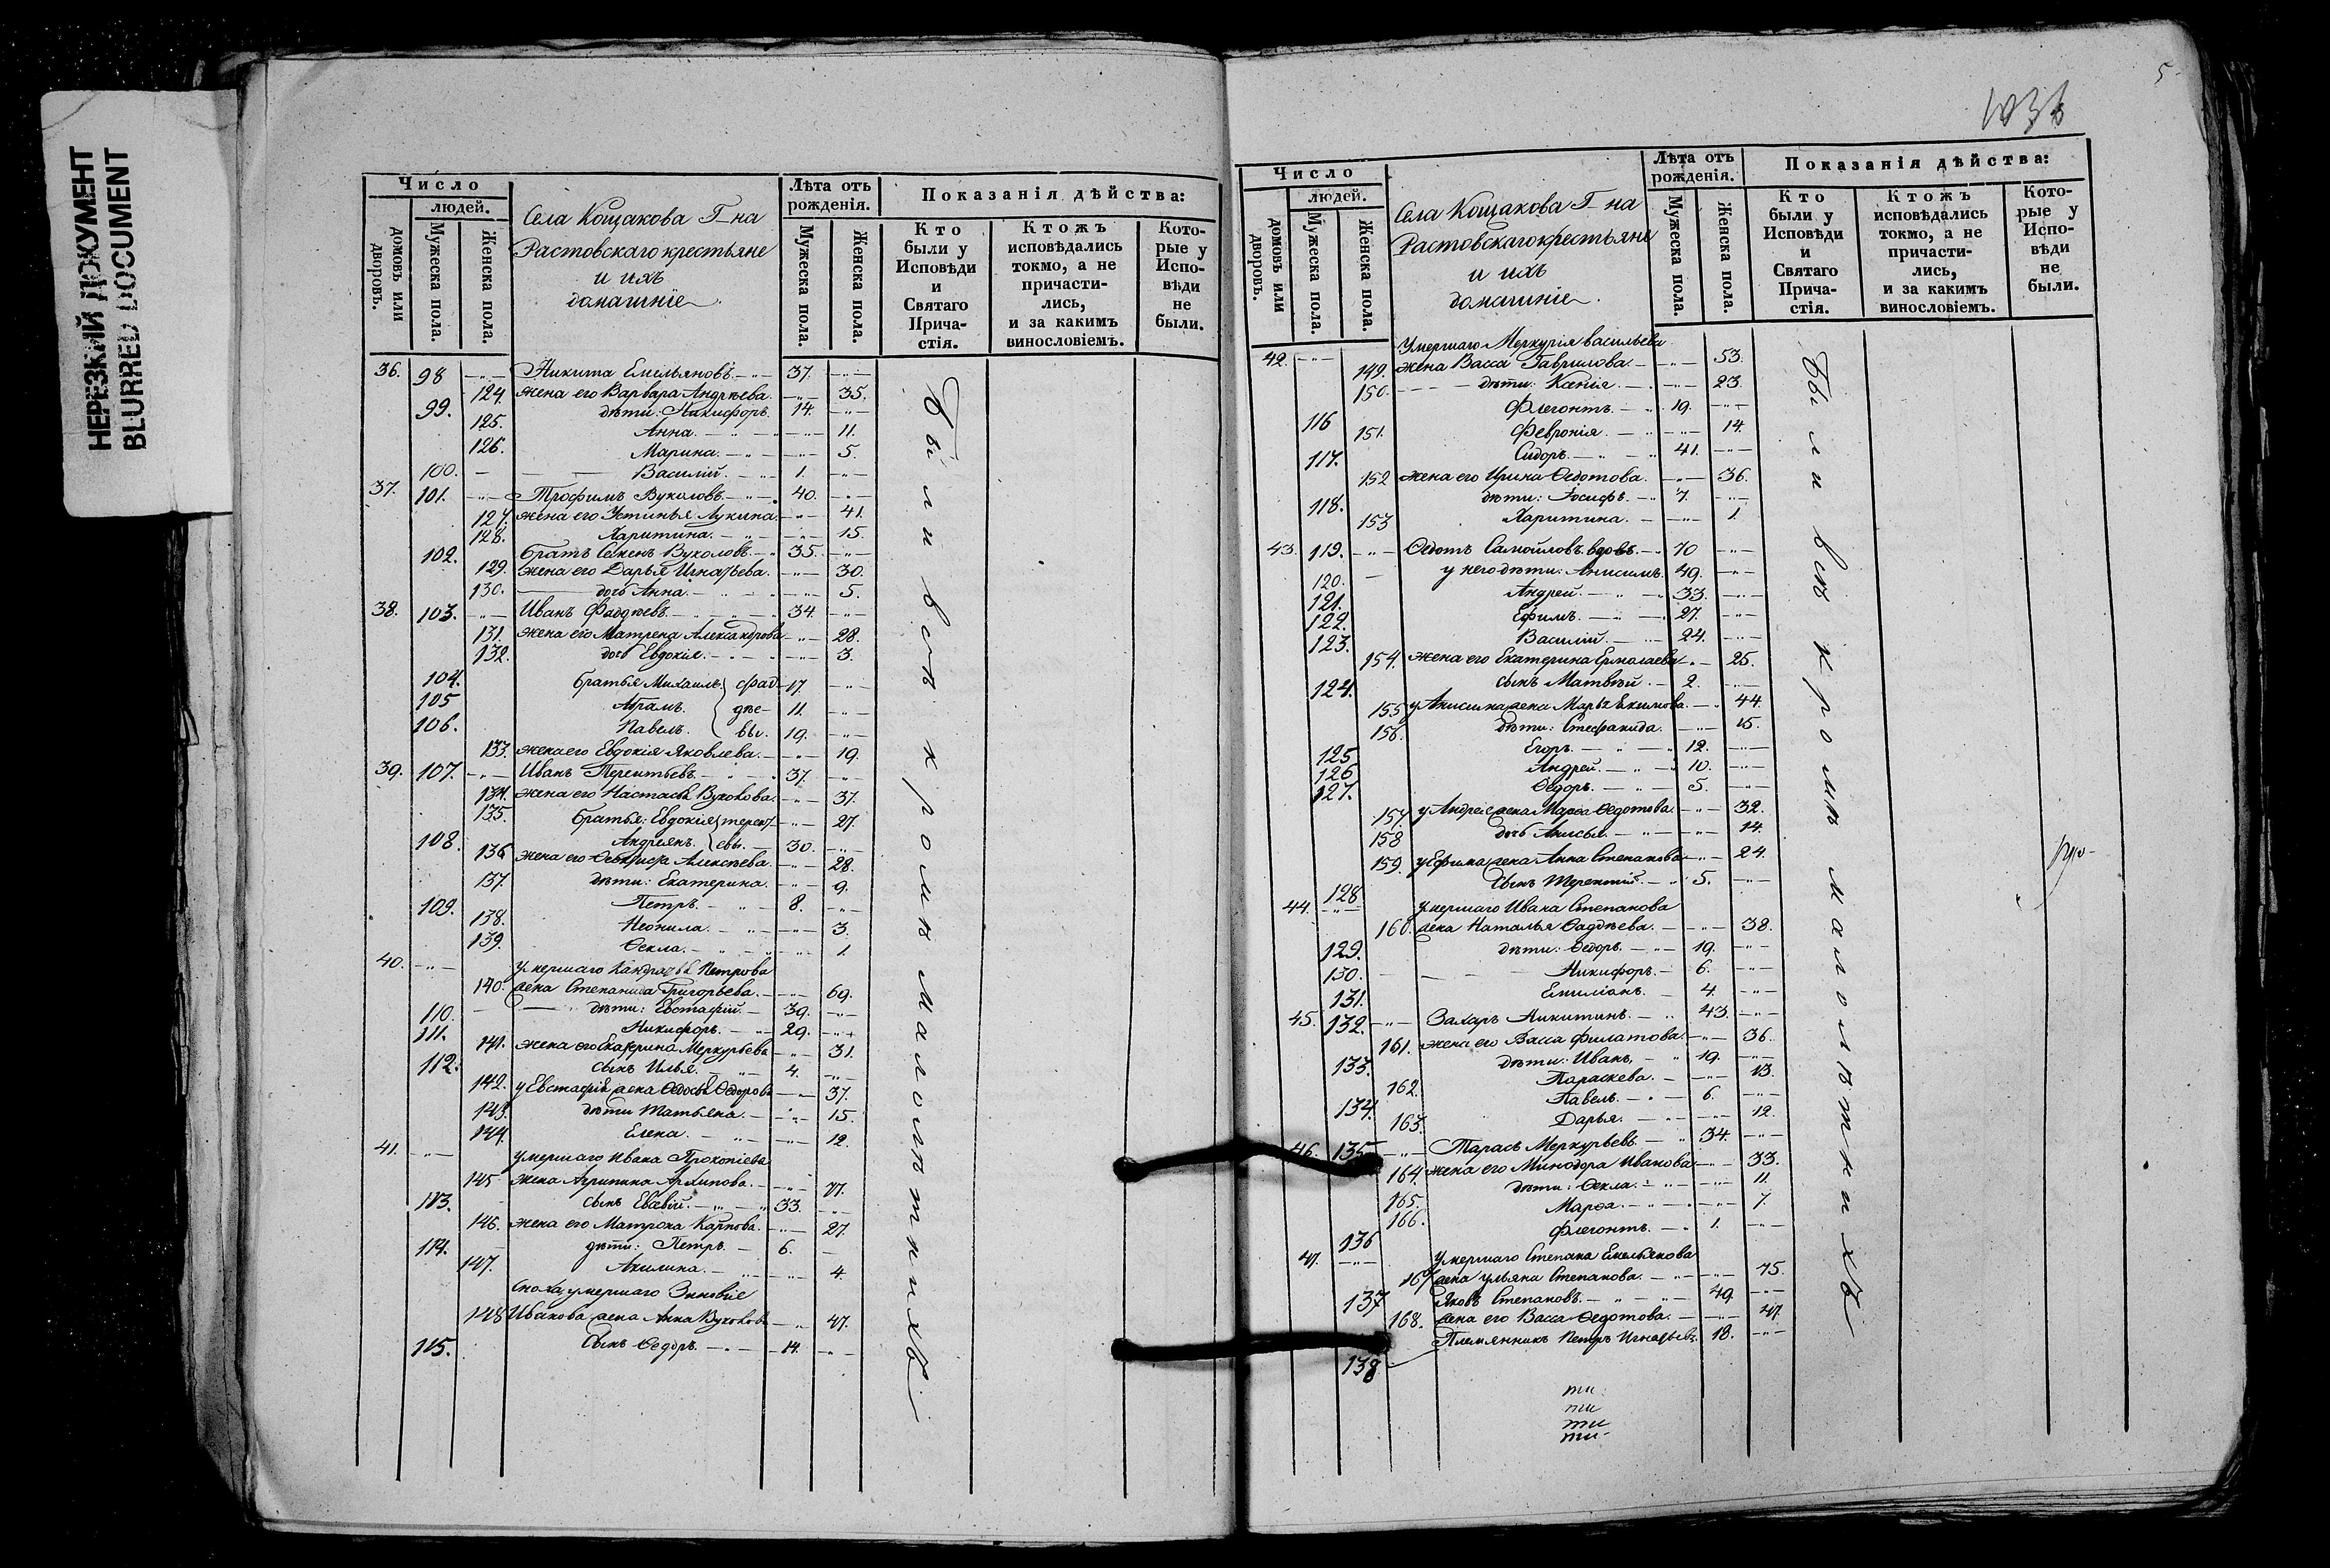 НЕРЕЗКИЙ ДОКУМЕНТ
BLURRED DOCUMENT
Число
людей.
домовъ или дворовъ.
Мужеска пола.
Женска пола.
Села Кощакова Г-на
Растовскаго крестьяне
и ихъ
домашніе
Лѣта отъ рожденія.
Мужеска пола.
Женска пола.
Показанія дѣйства:
Кто были у Исповѣди и Святаго Прича-стія.
Ктожъ исповѣдались токмо, а не причасти-лись, и за какимъ винословіемъ.
Кото-рые у Испо-вѣди не были.
36. 98 Никита Емельяновъ 37.
124. жена его Варвара Андрѣева. 35.
99. дѣти: Никифоръ. 14.
125. Анна. 11.
126. Марина. 5.
100. Василій. 1.
37. 101. Трофимъ Вуколовъ 40.
127. жена его Устинья Лукина 41.
128. Харитина. 15.
102. братъ Семенъ Вуколовъ 35.
129. жена его Дарья Игнатьева. 30.
130. дочь Анна. 5.
38. 103. Иванъ Фаддѣевъ 34.
131. жена его Матрена Александрова 28.
132. дочь Евдокія. 3.
104. братья Михаилъ фад- 17.
105 Абрамъ. дѣе- 11.
106. Павелъ. вы. 19.
133. жена его Евдокія Яковлева. 19.
39. 107. Иванъ Терентьевъ 37.
134. жена его Настасья Вуколова. 37.
135. братья: Евдокія терент- 27.
108. Андреянъ. евы. 30.
136 жена его Алексѣева. 28.
137. дѣти: Екатерина. 9.
109. Петръ. 8.
138. Неонила. 3.
139. Ѳекла. 1.
40. умершаго Кондратья Петрова
140. жена Степанида Григорьева. 69.
110. дѣти: Евстафій. 39.
111. Никифоръ. 29.
141. жена его Екатерина Меркурьева 31.
112. сынъ Илья. 4.
142. у Евстафія жена Ѳедосья Ѳедорова 37.
143. дѣти Татьяна. 15.
144. Елена. 12.
41. умершаго Ивана Прокопіева
145 жена Агрипина Архипова. 77.
113. сынъ Евсѣвій. 33.
146. жена его Матрона Карпова. 27.
114. дѣти: Петръ. 6.
147. Акилина. 4.
сноха умершаго Зиновіе
148 Иванова жена Анна Вуколова 47.
115. сынъ Ѳедоръ. 14.
Были всѣ кромѣ малолѣтнихъ
5
Число
людей.
домовъ или дворовъ.
Мужеска пола.
Женска пола.
Села Кощакова Г-на
Растовскаго крестьяне
и ихъ
домашніе.
Лѣта отъ рожденія.
Мужеска пола.
Женска пола.
Показанія дѣйства:
Кто были у Исповѣди и Святаго Прича-стія.
Ктожъ исповѣдались токмо, а не причасти-лись, и за какимъ винословіемъ.
Кото-рые у Испо-вѣди не были.
42. Умершаго Меркурія Васильева
149. жена Васса Гаврилова. 53.
150. дѣти: Ксенія. 23.
116 Флегонтъ. 19.
151. Февронія. 14.
117. Сидоръ. 41.
152 жена его Ирина Ѳедотова. 36.
118. дѣти: Іосифъ. 7.
153 Харитина. 1.
43. 119. Ѳедотъ Самойловъ вдовъ. 70
120. у него дѣти: Анисимъ. 49.
121. Андрей. 33.
122. Ефимъ. 27.
123. Василій. 24.
154. жена его Екатерина Ермолаева 25.
124. сынъ Матвѣй. 2.
155 у Анисима жена Марья Екимова. 44.
156. дѣти: Стефанида. 15.
125 Егоръ. 12.
126 Андрей. 10.
127. Ѳедоръ. 5.
157 у Андрея жена Марѳа Ѳедотова. 32.
158 дочь Анисья. 14.
159. у Ефима жена Анна Степанова 24.
128 сынъ Терентій. 5.
44. умершаго Ивана Степанова
160. жена Наталья Фаддѣева. 38.
129. дѣти: Ѳедоръ. 19.
130. Никифоръ. 6.
131. Емиліанъ. 4.
45. 132. Захаръ Никитинъ. 43.
161. жена его Васса Филатова. 36.
133. дѣти: Иванъ. 19.
162. Параскева. 13.
134. Павелъ. 6.
163. Дарья. 12.
46. 135 Тарасъ Меркурьевъ 34.
164. жена его Минодора Иванова 33.
165. дѣти: Ѳекла. 11.
166. Марѳа. 7.
136 Флегонтъ. 1.
47. умершаго Степана Емельянова
167 жена Ульяна Степанова. 75.
137 Яковъ Степановъ. 49.
168. жена его Васса Ѳедотова. 47.
138 Племянникъ Петръ Игнатьевъ. 18.
ти
ти
ти
ти
Были всѣ кромѣ малолѣтнихъ